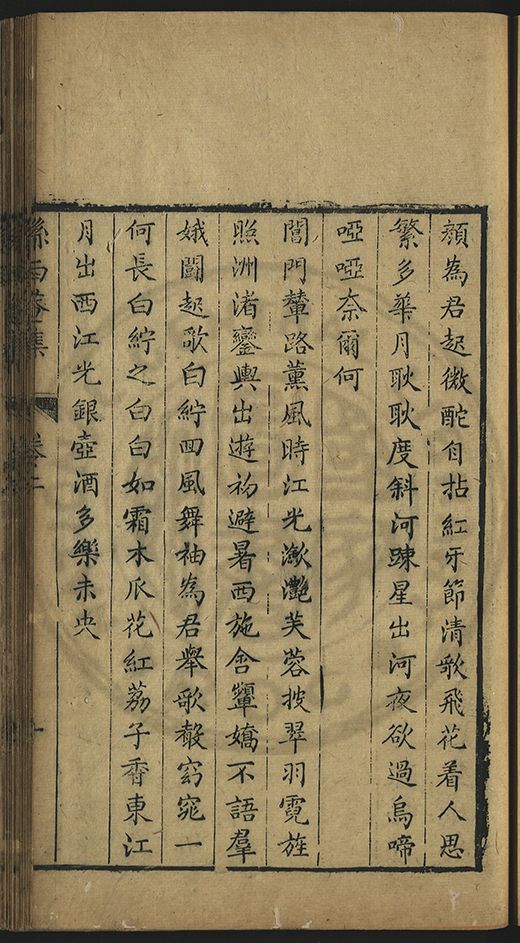 顔為君起微酡自拈紅牙節清歌飛花着人思
繁多華月耿耿度斜河踈星出河夜欲過烏啼
啞啞奈爾何
閶門輦路薫風時江光潋灔芙蓉披翠羽霓旌
照洲渚鑾輿出遊初避暑西施含顰嬌不語羣
娥闘起歌白紵回風舞袖為君舉歌聲窈窕一
何長白紵之白白如霜木瓜花紅荔子香東江
月出西江光銀壺酒多樂未央
西菴集 卷二